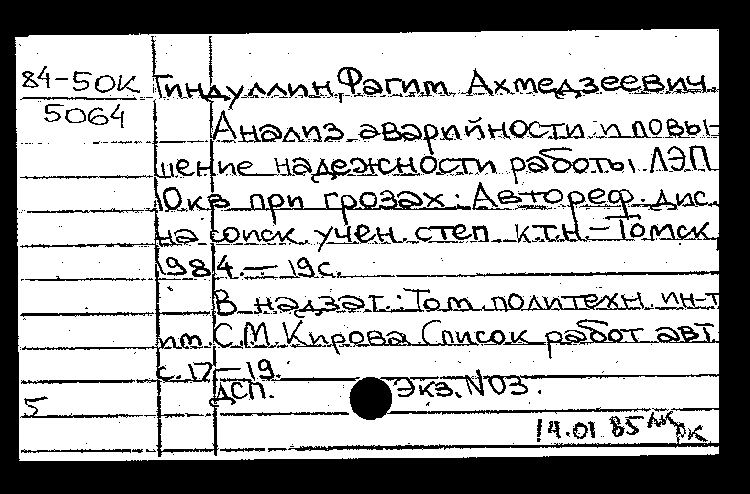 84-50к Гиндуллин, Фагим Ахмедзеевич.
5064
Анализ аварийности и повы-
шение надежности работы ЛЭП
10кв при грозах: Автореф. дис.
на соиск. учен. степ. к.т.н. - Томск,
1984. - 19с.
В надзаг.: Том. политехн. ин-т
им. С.М. Кирова Список работ авт.
с. 17-19.
ДСП. Экз. N03.
5
14.01.85